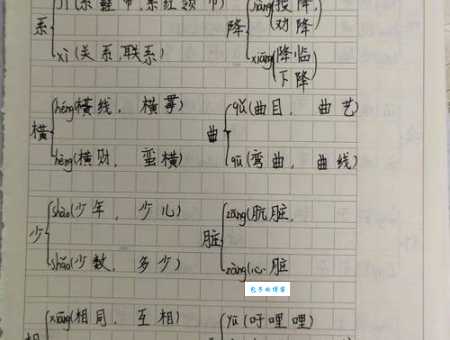 系 jì(系鞋带,系红领巾)
xì(关系,联系)
降 jiàng(投降,劝降)
xiáng(降临 下降)
横 héng(横线, 横掌)
hèng(横财, 蛮横)
曲 qǔ(曲目, 曲艺)
qū(弯曲, 曲线)
少 shào(少年, 少儿)
shǎo(少数, 多少)
脏 zāng(肮脏,
zàng(心脏
相 xiāng(相同, 互相)
yū(吁哩哩)